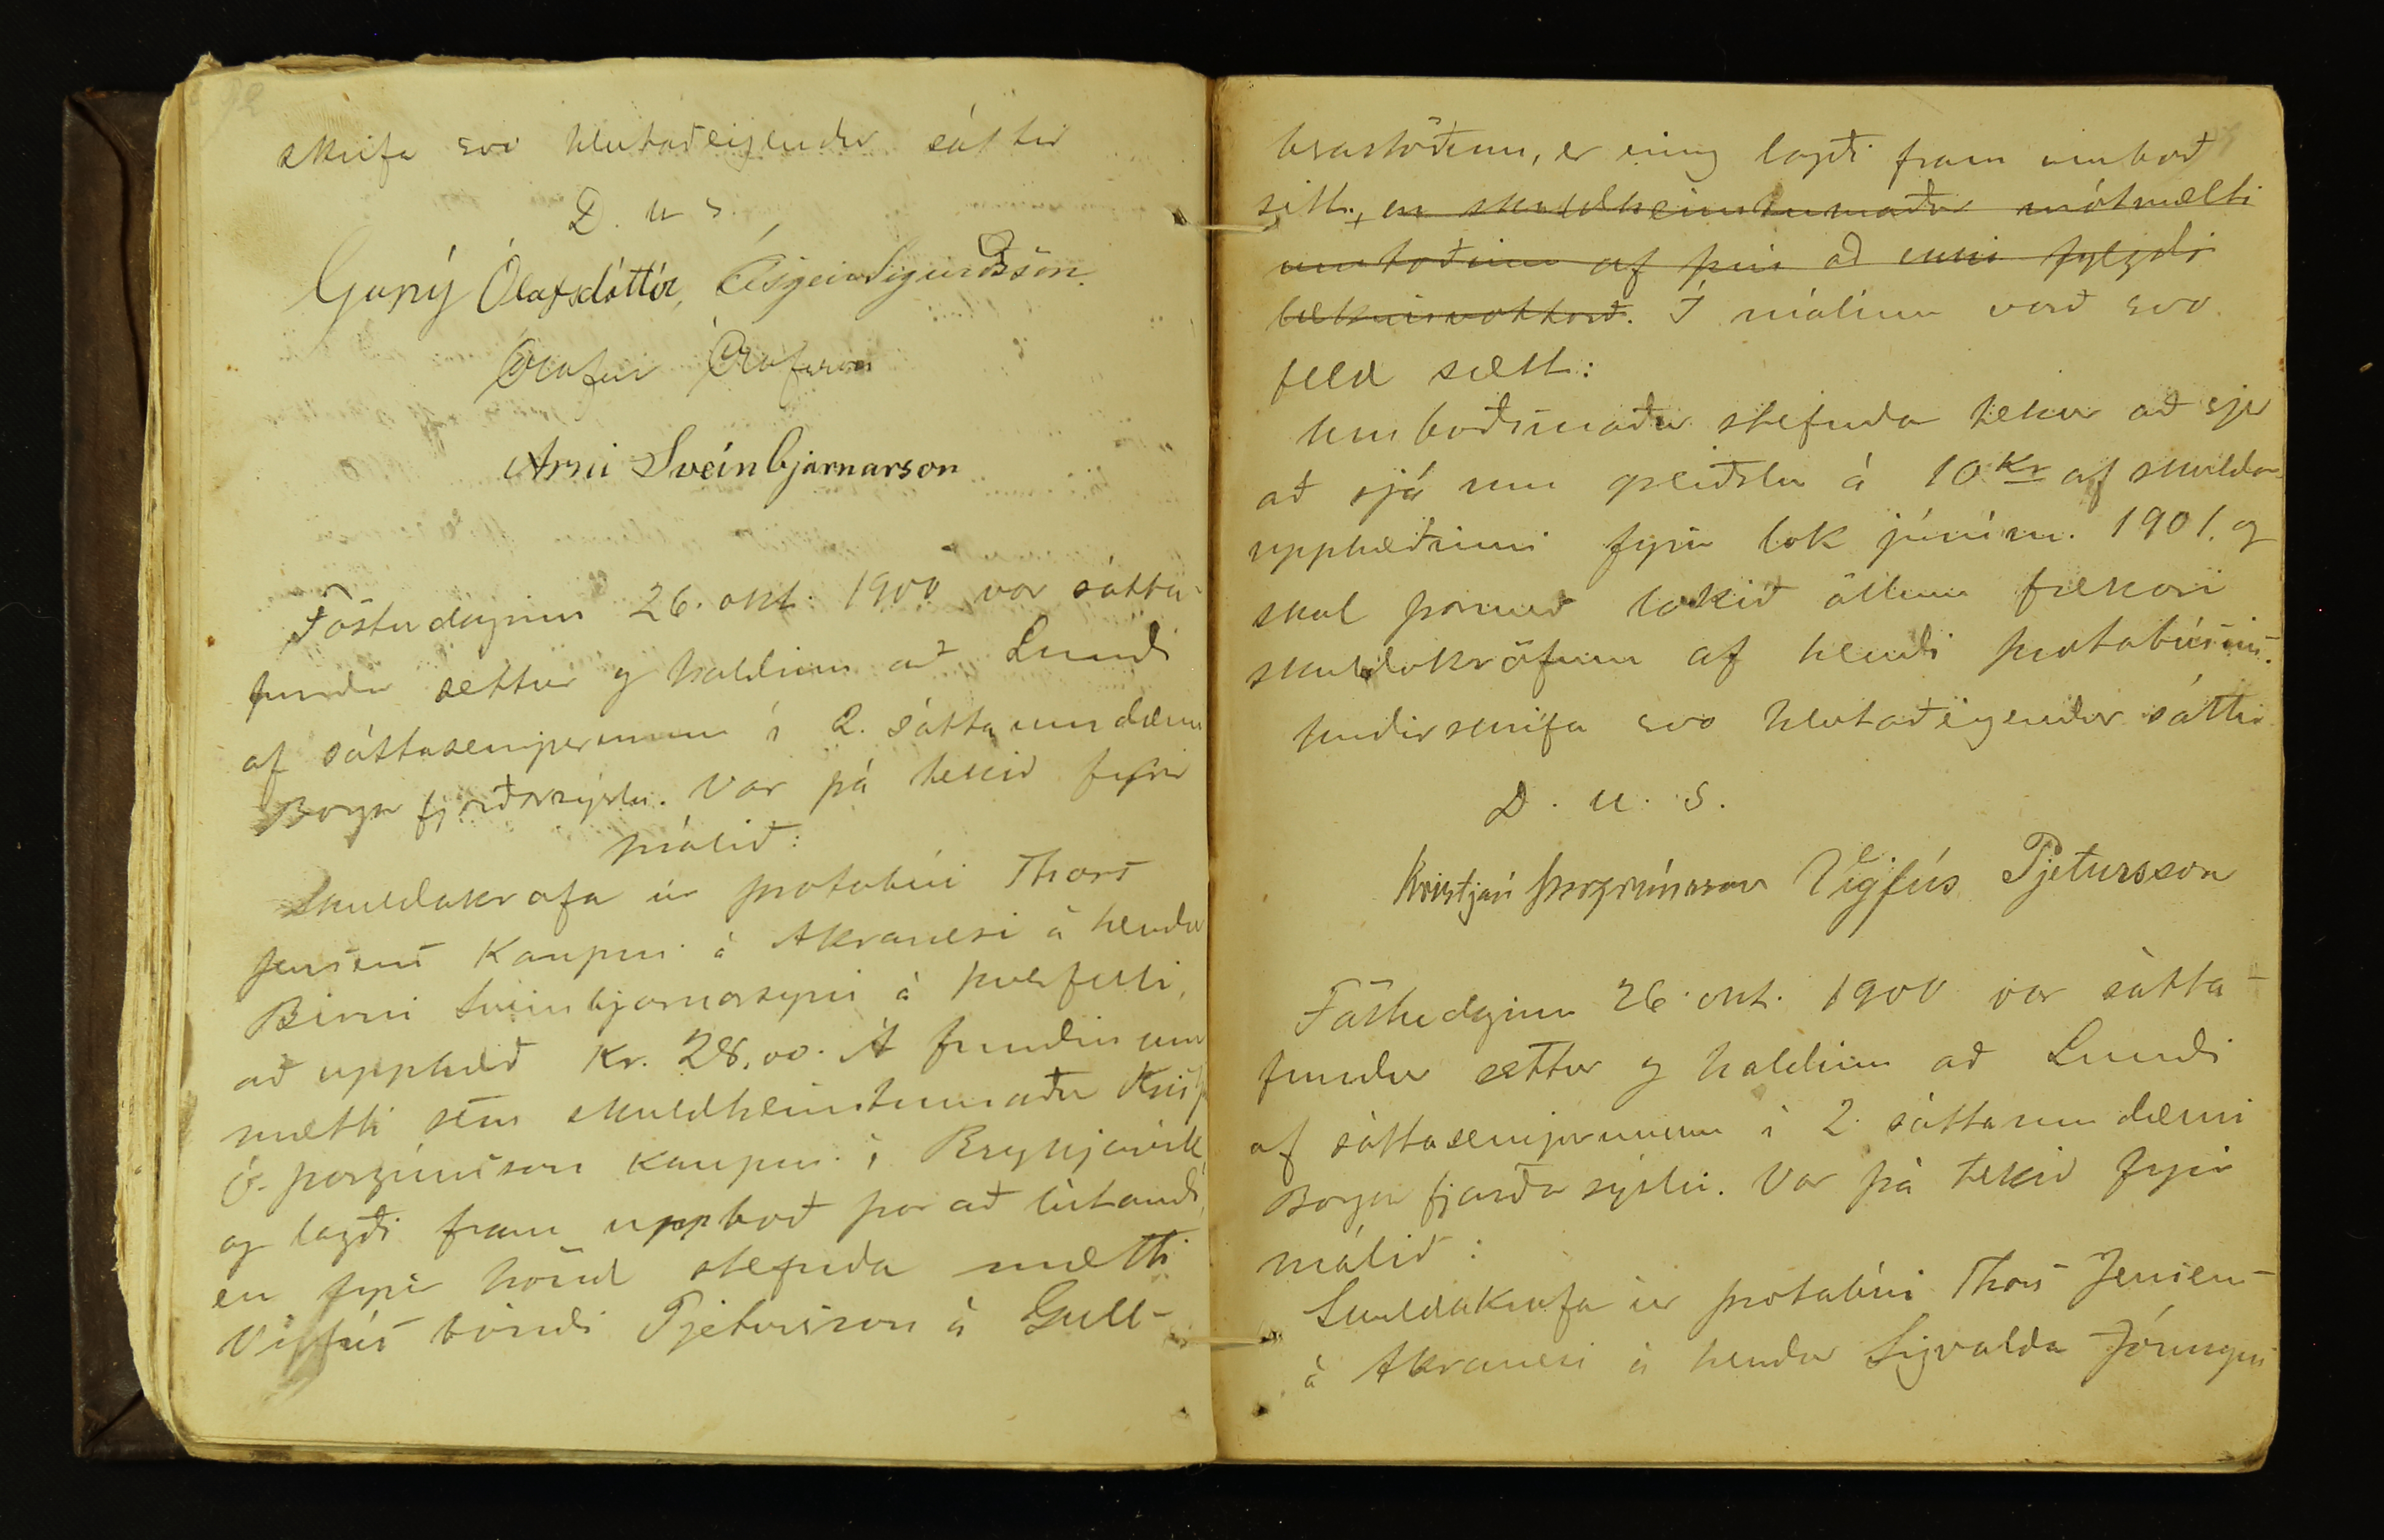 skrifa svo hlutaðeigendur sáttir
D. u s.
Guðný Ólafsdóttir, Ásgeir Sigurðsson.
Ólafur Ólafsson
Arni Sveinbjarnarson
Föstudaginn 26. okt. 1900 var sátta-
fundur settur og haldinn að Lundi
af sáttasemjurunum í 2. sáttaumdæmi
Borgarfjarðarsýslu. Var þá tekið fyrir
málið:
Skuldakrafa úr þrotabúi Thors
Jensens Kaupm. á Akranesi á hendur
Birni Sveinbjarnarsyni á Þverfelli,
að upphæð Kr. 28,00. Á fundinum
mætti sem skuldheimtumaður Kristj.
Ó. Þorgrímsson kaupm. í Reykjavík
og lagði fram uppboð þar að lútandi,
en fyrir hönd stefnda mætti
Vigfús bóndi Pjetursson á Gull-
berastöðum, er einnig lagði fram umboð
sitt, en skuldheimtumaður mótmælti
umboðinu af því að enni fylgdi
læknisvottorð. Í málinu varð svo
felld sætt:
Umboðsmaður stefnda tekur að sjer
að sjá um greiðslu á 10 Kr af skulda-
upphæðinni fyrir lok júním. 1901. og
skal þarmeð lokið öllum frekari
skuldakröfum af hendi þrotabúsins.
Undirskrifa svo hlutaðeigendur sáttir
D. u. s.
Kristján Þorgrímsson Vigfús Pjetursson
Föstudaginn 26. okt. 1900 var sátta-
fundur settur og haldinn að Lundi
af sáttasemjurunum í 2. sáttaumdæmi
Borgarfjarðarsýslu. Var þá tekið fyrir
málið:
Skuldakrafa úr þrotabúi Thors Jensens
á Akranesi á hendur Sigvalda Jónssyni